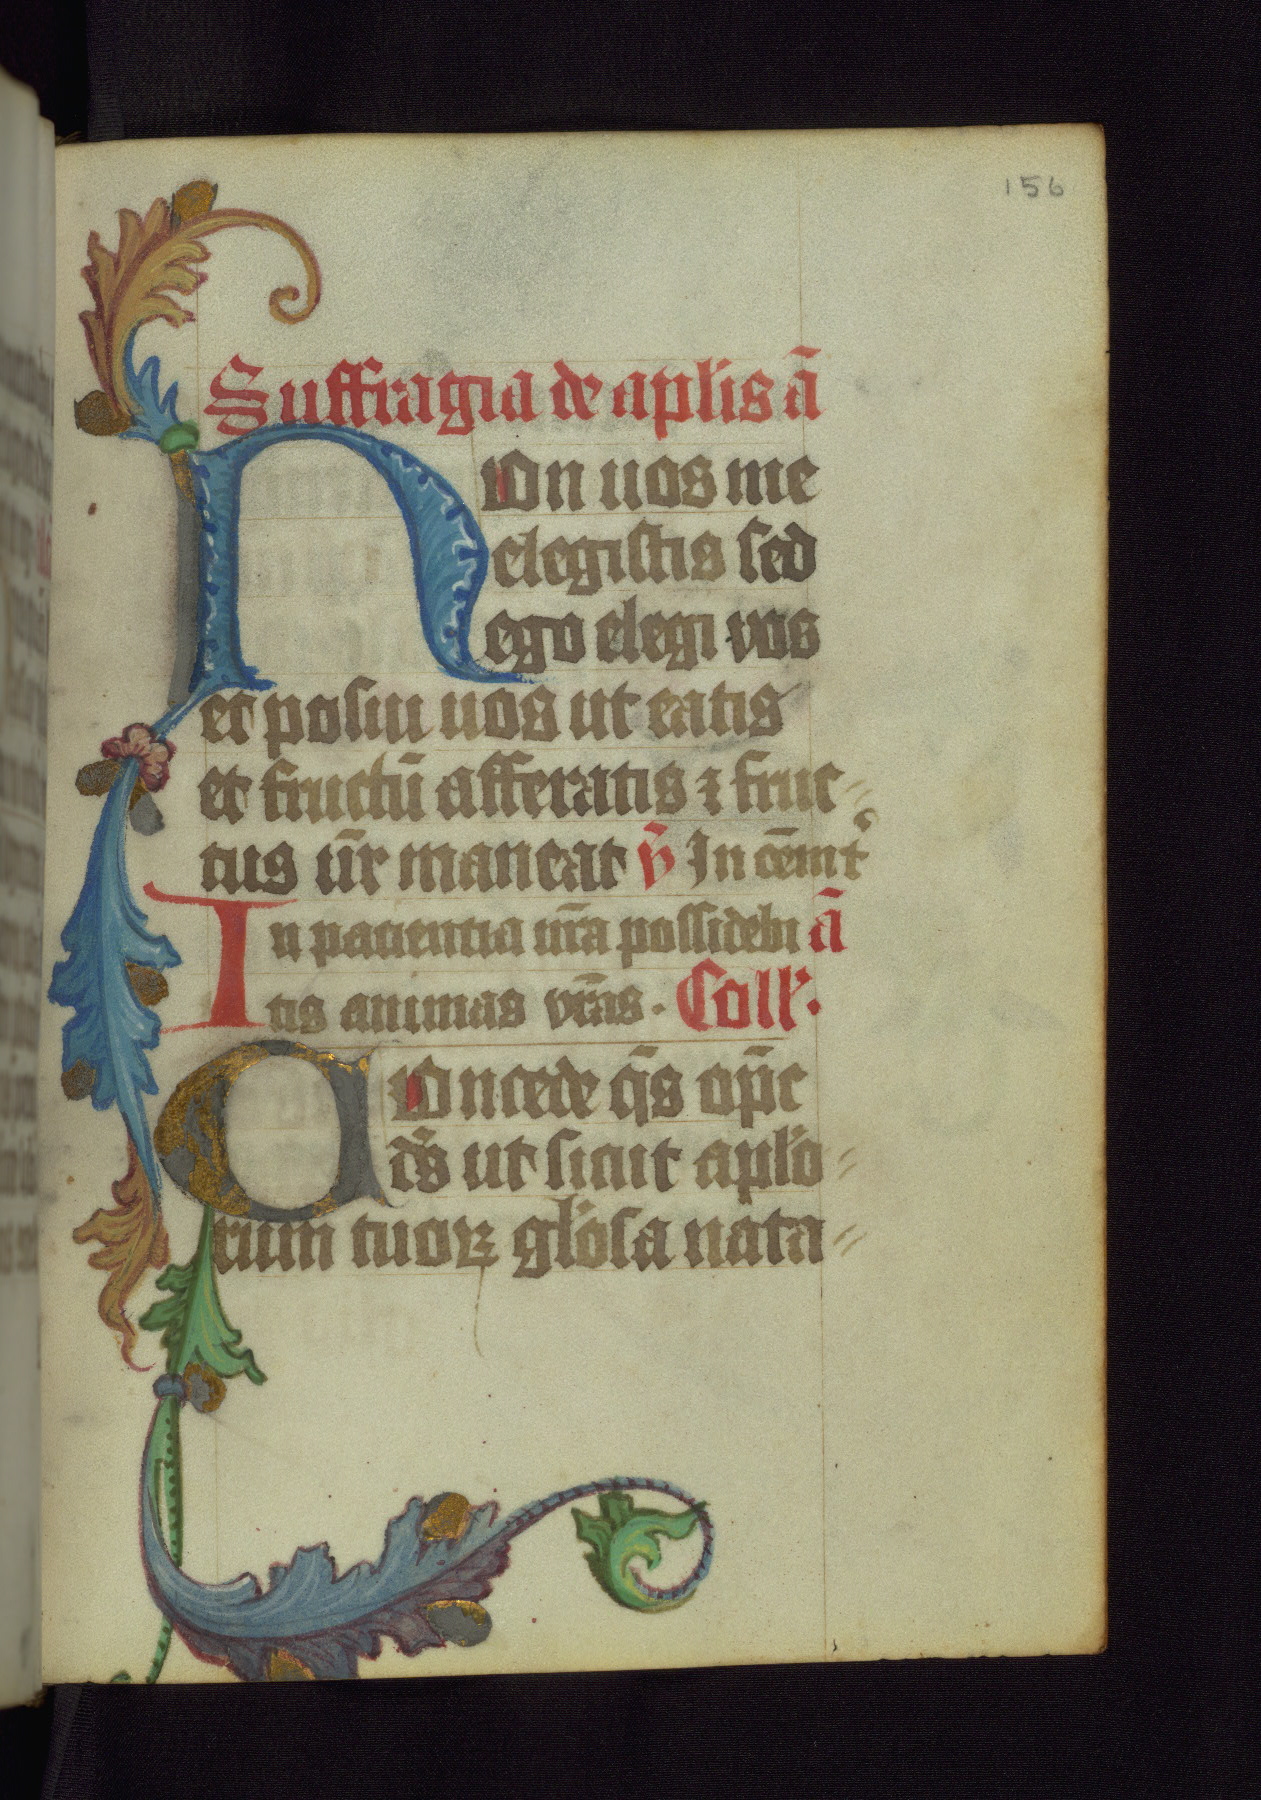 156
Suffragia de aplis ā
Non uos me
elegistis sed
ego elegi vos
et posui uos ut eatis
et fructū afferatis ⁊ fruc〃
tus ur̄ maneat v̄ In
In patientia ur̄a possidebi ā
tis animas vr̄as. Coll'.
Concede q̄s op̄c
ds̄ ut sicut aplo〃
rum tuoꝝ gl'osa nata〃